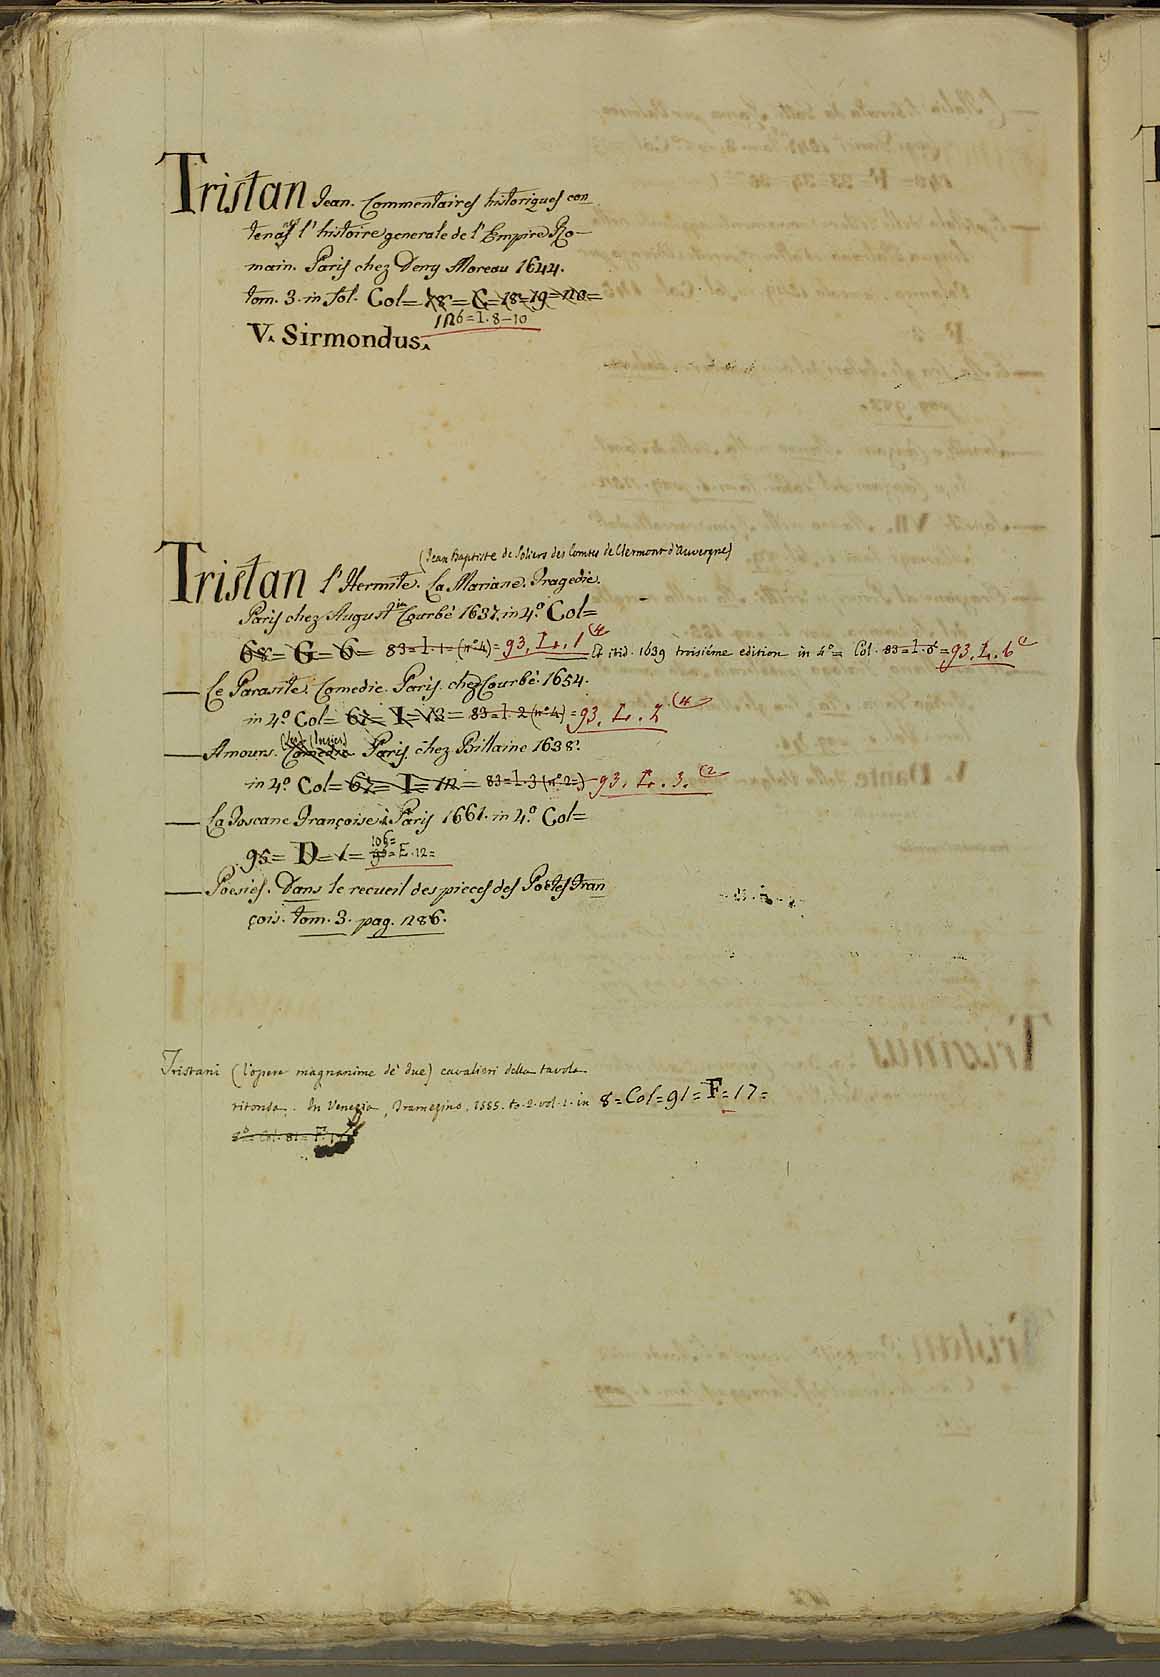 Tristan Jean. Commentaires historiques con
tenans l'histoire generale de l'Empire Ro-
main. Paris chez Deny Moreau 1644.
tom. 3. in fol. Col= 78= G= 18= 19= 20=
126=I. 8-10
V. Sirmondus.
(Jean Baptiste de Soliers des Comtes de Clermont d'Auvergne)
Tristan l'Hermite. La Mariane. Tragedie.
Paris chez Augustin Courbè 1637. in 4.º Col=
68= G= 6= 83=I.1=(nº4)= 93. L. 1 (4 Et ibid. 1639 troisiéme edition in 4º= Col. 83=I.6=93. L. 6
— Le Parasite. Comedie. Paris. chez Courbè. 1654.
in 4.º Col= 67= I= 13= 83=I.2(nº4)=93. L. 2 (4
— Amours. Comedie Paris. chez Billaine 1638.
in 4.º Col= 67= I= 12= 83=I.3(nº2=) 93. L. 3. (2
— La Toscane Françoise à Paris 1661. in 4.º Col=
106=
95= D= 1= E.12=
— Poesies. Dans le recueil des pieces des Poëtes Fran
çois. tom. 3. pag. 286.
Tristani (l'opere magnanime de' due) cavalieri della tavola
ritonda. In Venezia, Tramezino. 1555. to. 2. vol. 1. in 8=Col=91=F=17=
8º= Col. 81= F. 17